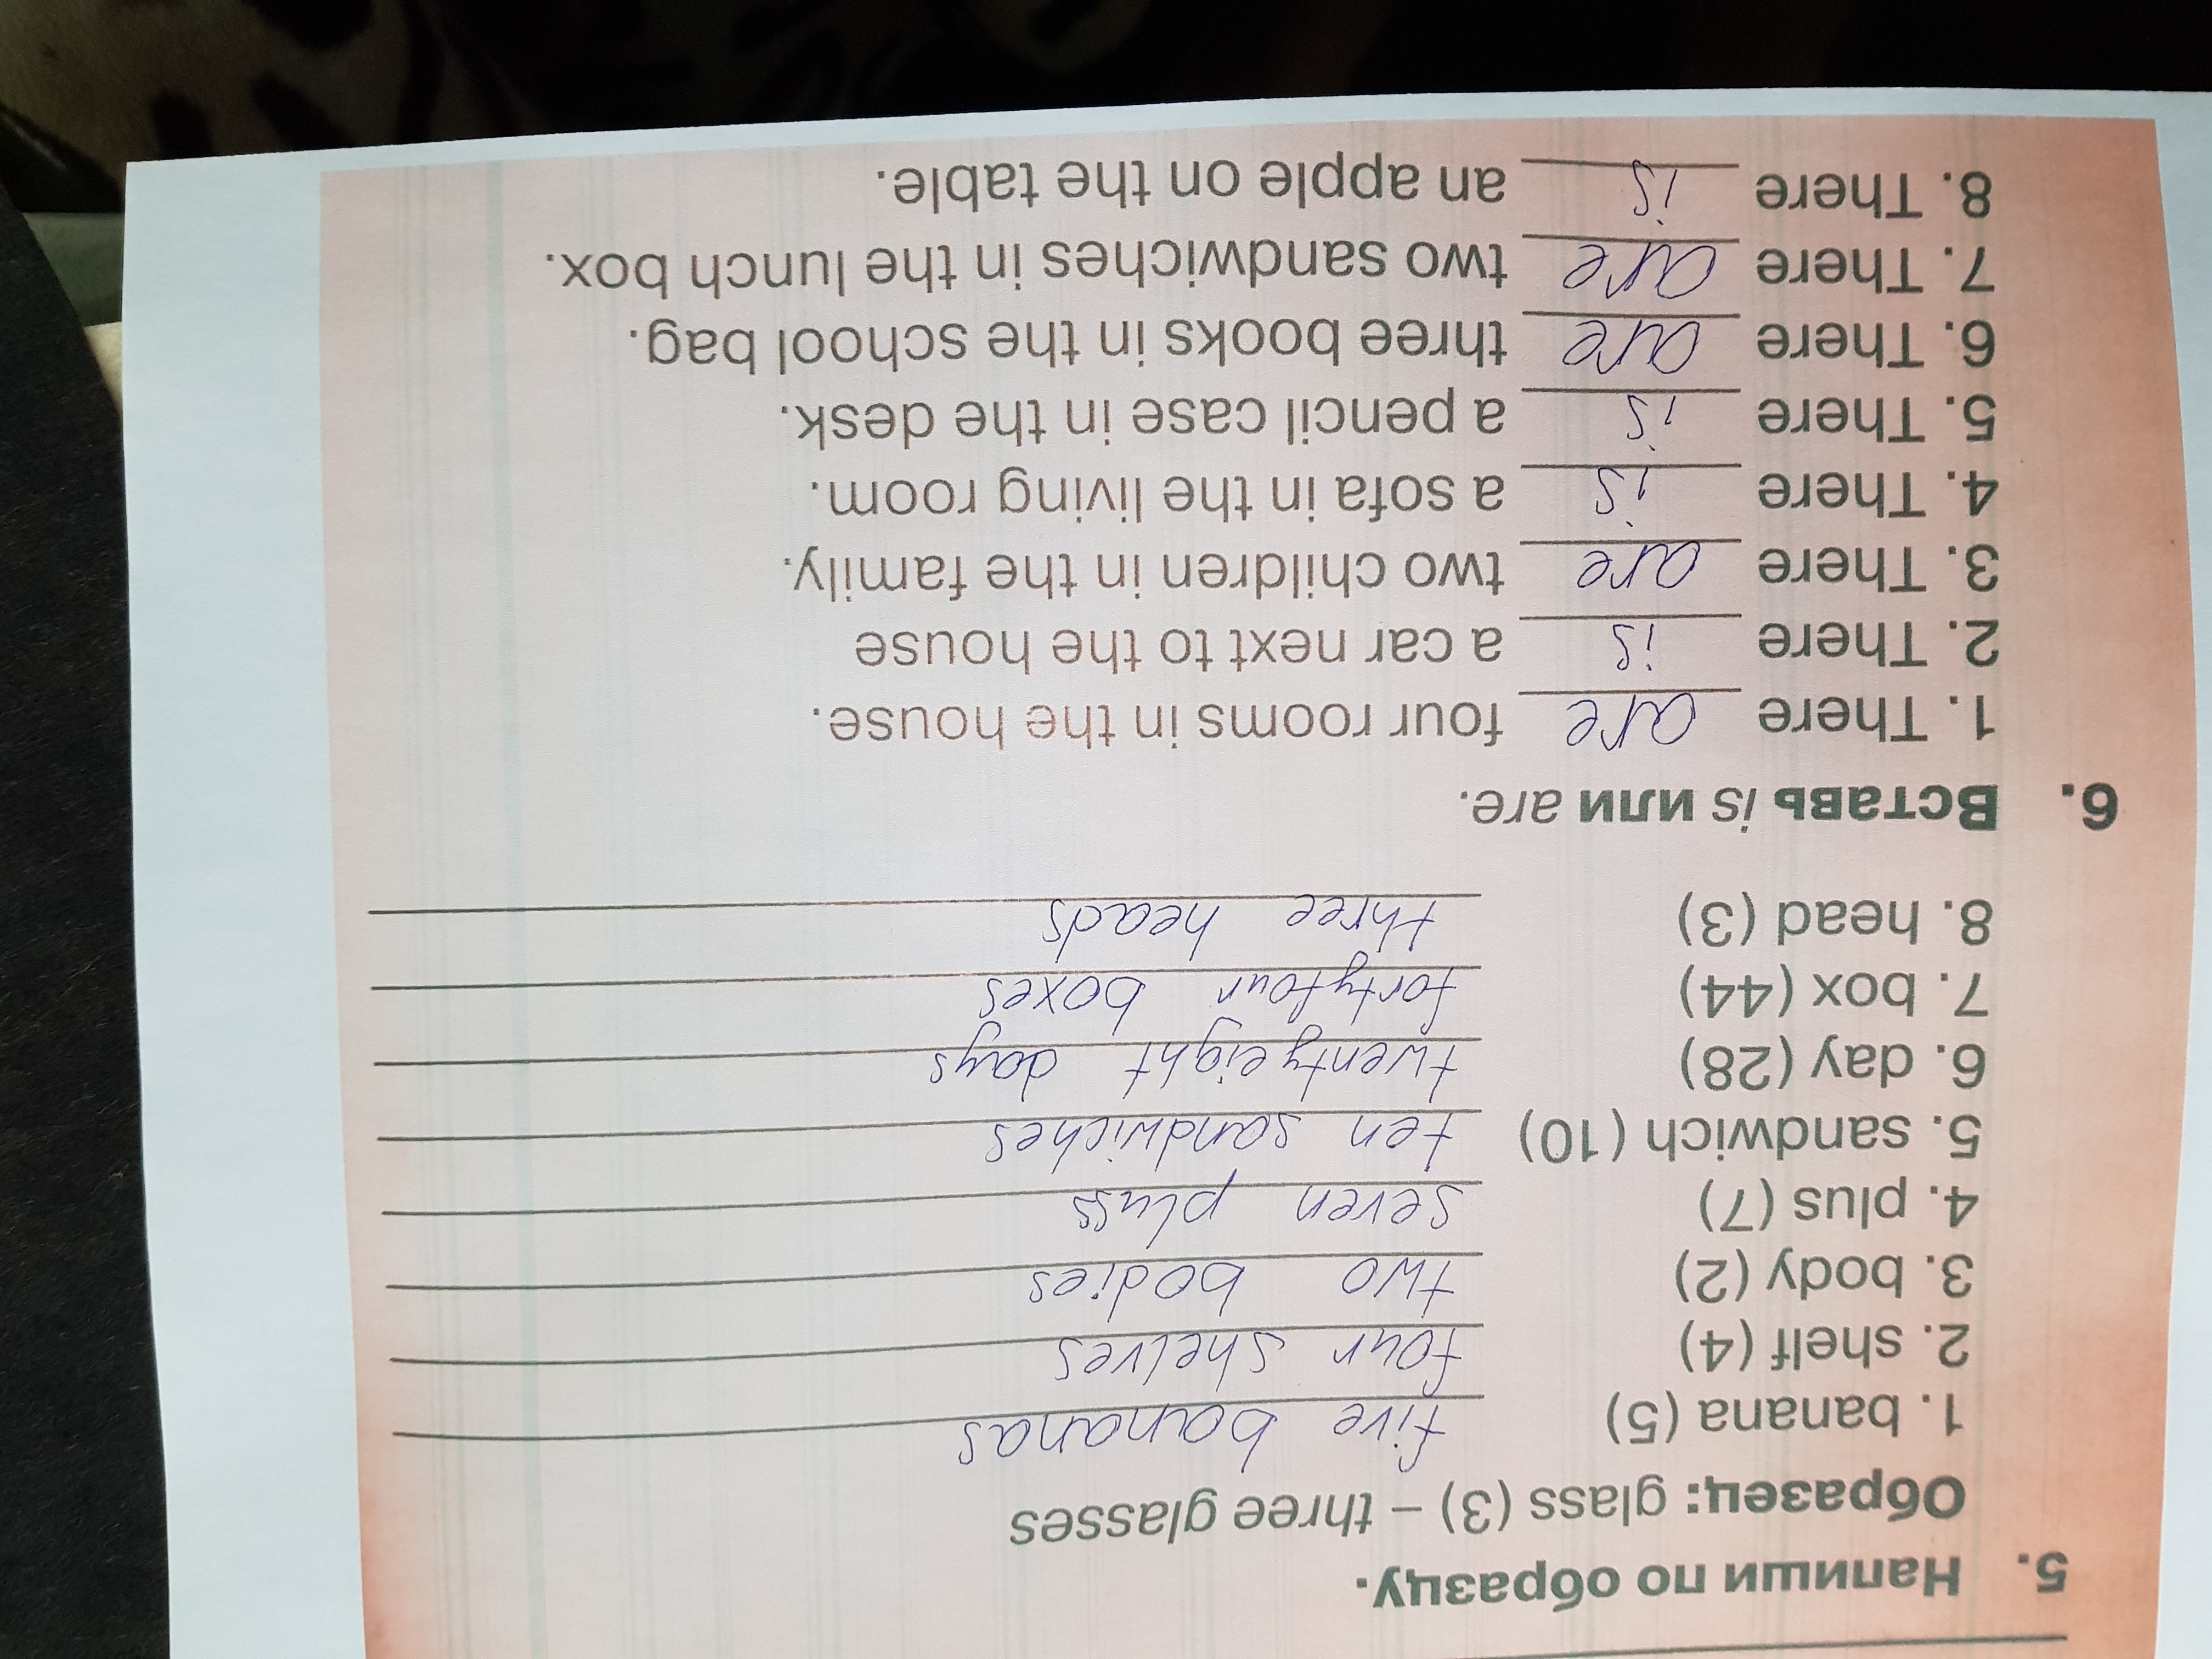 5. Напиши по образцу.
Образец: glass (3) – three glasses
1. banana (5) five bananas
2. shelf (4) four shelves
3. body (2) two bodies
4. plus (7) seven pluss
5. sandwich (10) ten sandwiches
6. day (28) twentyeight days
7. box (44) fortyfour boxes
8. head (3) three heads
6. Вставь is или are.
1. There are four rooms in the house.
2. There is a car next to the house
3. There are two children in the family.
4. There is a sofa in the living room.
5. There is a pencil case in the desk.
6. There are three books in the school bag.
7. There are two sandwiches in the lunch box.
8. There is an apple on the table.